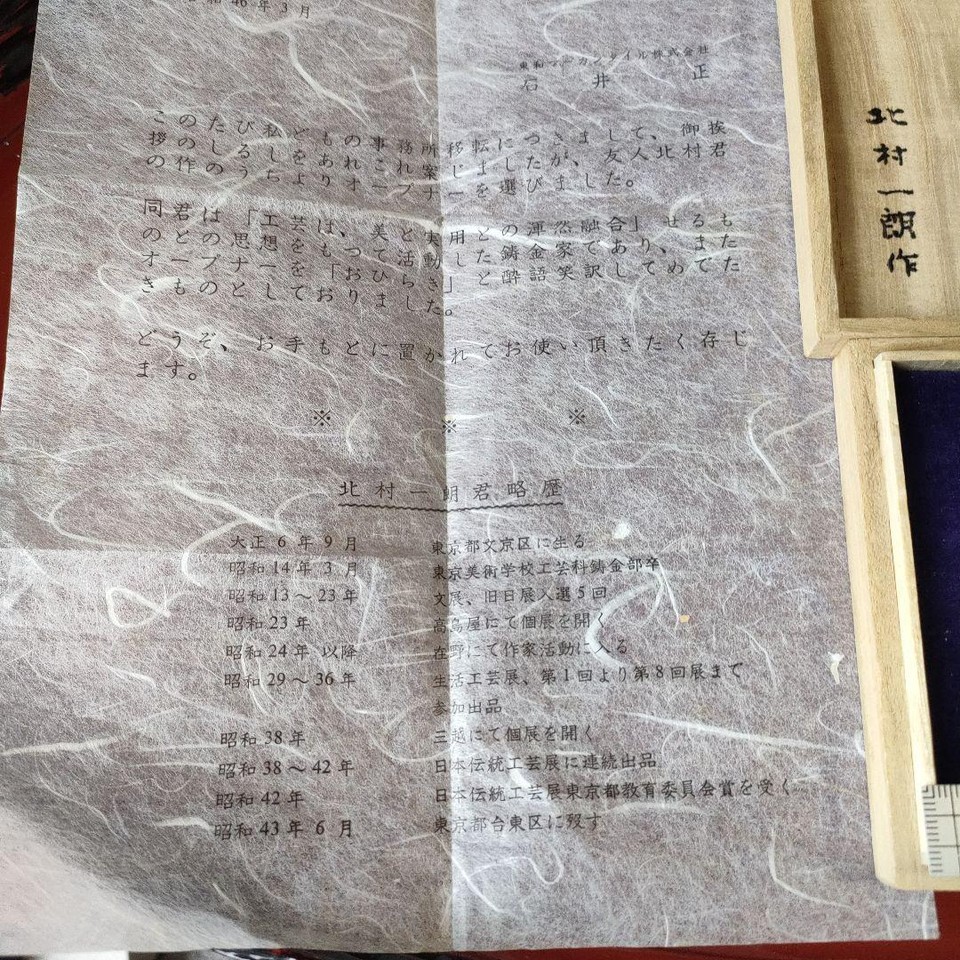 昭和46年3月
東和マーカンタイル株式会社
石井 正
このたび私どもの事務所移転につきまして、御挨
拶のしるしをあれこれ案じましたが、友人、北村君
の作のうちよりオープナーを選びました。
同君は「工芸は、美と実用との渾然融合」せるも
のとの思想をもつて活動した鋳金家であり、また
オープナーも「おひらき」と酔語笑訳してめでた
きものとしておりました。
どうぞ、お手もとに置かれてお使い頂きたく存じ
ます。
※ ※ ※
北村一朗君略歴
大正6年9月 東京都文京区に生る
昭和14年3月 東京美術学校工芸科鋳金部卒
昭和13～23年 文展、旧日展入選5回
昭和23年 高島屋にて個展を開く
昭和24年以降 在野にて作家活動に入る
昭和29～36年 生活工芸展、第1回より第8回展まで
参加出品
昭和38年 三越にて個展を開く
昭和38～42年 日本伝統工芸展に連続出品
昭和42年 日本伝統工芸展東京都教育委員会賞を受く
昭和43年6月 東京都台東区に歿す
北村一朗作